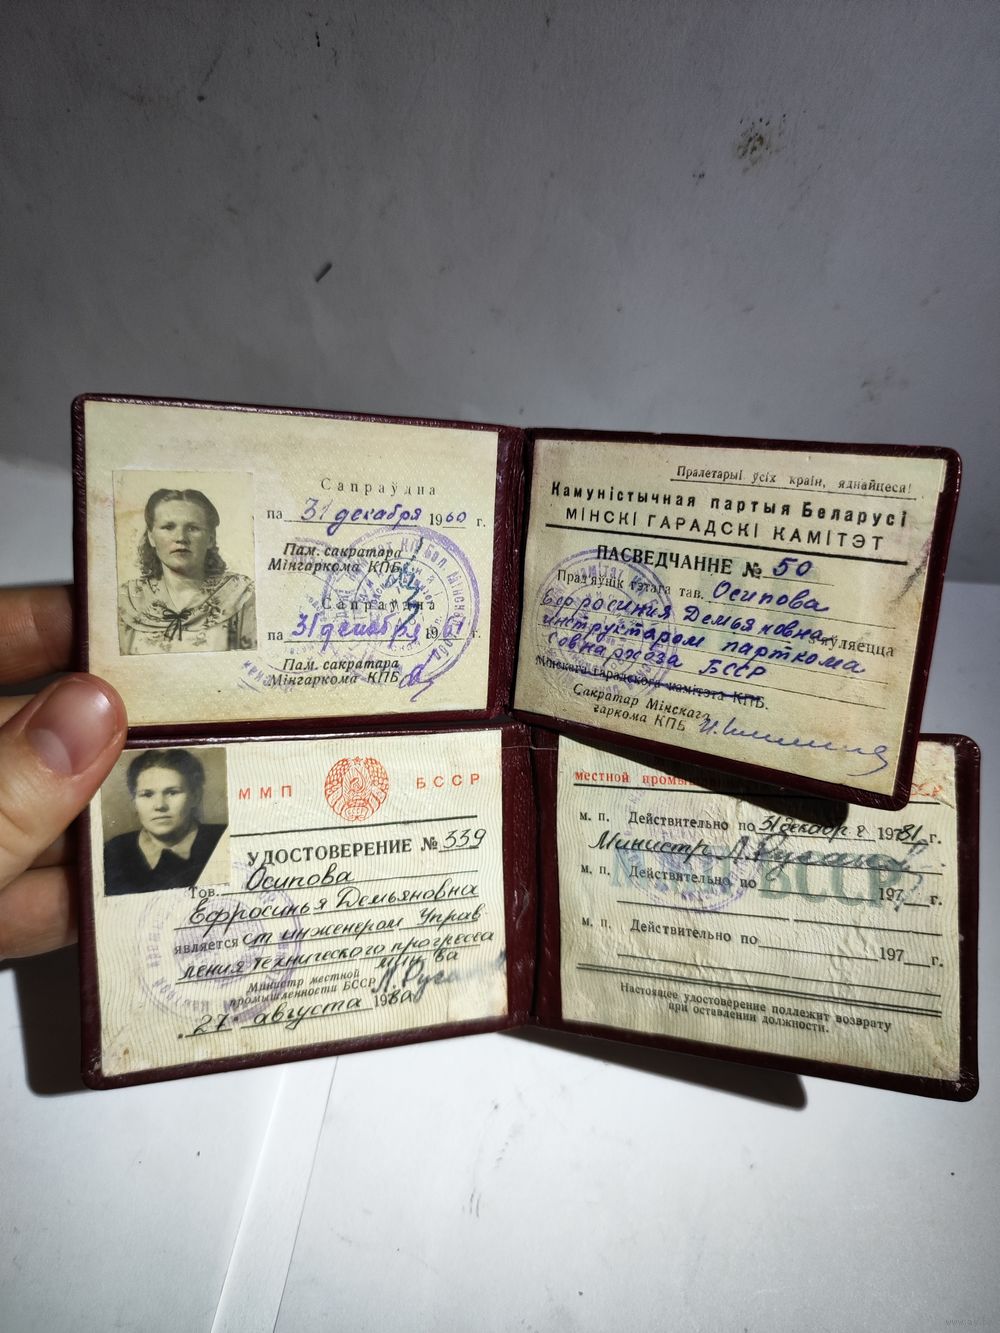 Сапраўдна
па 31 декабря 1960 г.
Пам. сакратара
Мінгаркома КПБ
Сапраўдна
па 31 декабря 1961 г.
Пам. сакратара
Мінгаркома КПБ
Пралетарыі ўсіх краін, яднайцеся!
Камуністычная партыя Беларусі
МІНСКІ ГАРАДСКІ КАМІТЭТ
ПАСВЕДЧАННЕ № 50
Прад'яўнік гэтага тав. Осипова
Ефросиния Демьяновна
инструктаром парткома
Совнархоза БССР
Мінскага гарадскога камітэта КПБ.
Сакратар Мінскага
гаркома КПБ
ММП БССР
УДОСТОВЕРЕНИЕ № 339
Тов. Осипова
Ефросинья Демьяновна
является ст инженером Управ
ления технического прогресса
Министр местной мин-ва
промышленности БССР
27 августа 1980
местной
м. п. Действительно по 31 декабр 1981 г.
Министр
м. п. Действительно по
БССР
197 г.
м. п. Действительно по
197 г.
Настоящее удостоверение подлежит возврату
при оставлении должности.